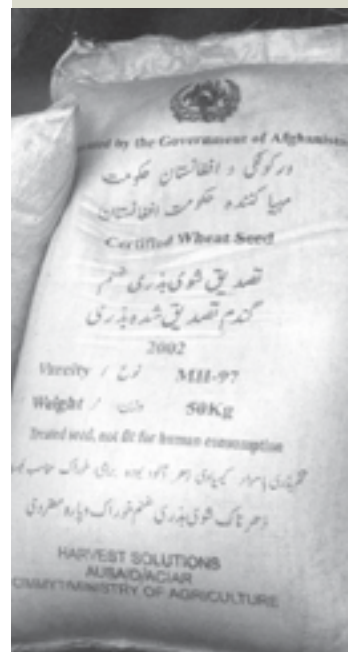 by the Government of Afghanistan
ورکوونکی د افغانستان حکومت
مهیا کننده حکومت افغانستان
Certified Wheat Seed
تصدیق شوی بذری غنم
گندم تصدیق شده بذری
2002
Vareity / نوع MH-97
Weight / وزن 50Kg
Treated seed, not fit for human consumption
زهر
زهر ناک شوی بذری غنم خوراک دپاره
HARVEST SOLUTIONS
AUSAID/ACIAR
CIMMYT/MINISTRY OF AGRICULTURE